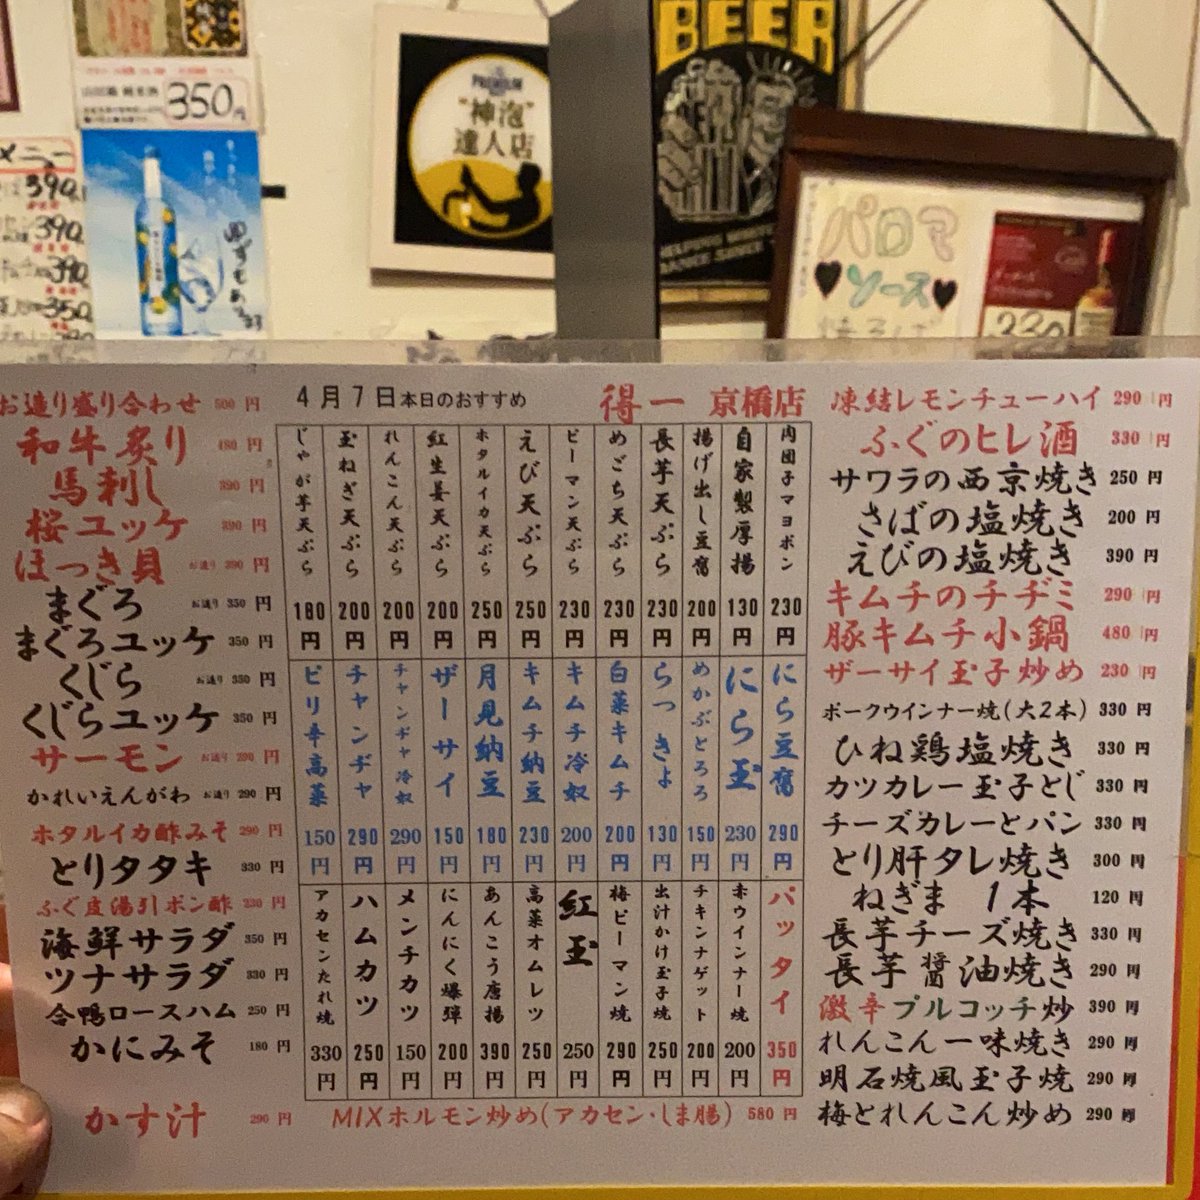 350円
メニュー
390
390
390
350
ゆずもあります
PREMIUM
"神泡"
達人店
BEER
パロマ
ソース
焼そば
330
4月7日本日のおすすめ
得一 京橋店
お造り盛り合わせ 500円
和牛炙り 480円
馬刺し 390円
桜ユッケ 390円
ほっき貝 お造り 390円
まぐろ お造り 350円
まぐろユッケ 350円
くじら お造り 350円
くじらユッケ 350円
サーモン お造り 290円
かれいえんがわ お造り 290円
ホタルイカ酢みそ 290円
とりタタキ 330円
ふぐ皮湯引ポン酢 330円
海鮮サラダ 350円
ツナサラダ 330円
合鴨ロースハム 250円
かにみそ 180円
かす汁 290円
肉団子マヨポン 230円
自家製厚揚 130円
揚げ出し豆腐 200円
長芋天ぷら 230円
めごち天ぷら 230円
ピーマン天ぷら 230円
えび天ぷら 250円
ホタルイカ天ぷら 250円
紅生姜天ぷら 200円
れんこん天ぷら 200円
玉ねぎ天ぷら 200円
じゃが芋天ぷら 180円
にら豆腐 290円
にら玉 230円
めかぶとろろ 150円
らっきょ 130円
白菜キムチ 200円
キムチ冷奴 200円
キムチ納豆 230円
月見納豆 180円
ザーサイ 150円
チャンヂャ冷奴 290円
チャンヂャ 290円
ピリ辛高菜 150円
パッタイ 350円
赤ウインナー焼 200円
チキンナゲット 200円
出汁かけ玉子焼 250円
梅ピーマン焼 290円
紅玉 250円
高菜オムレツ 250円
あんこう唐揚 390円
にんにく爆弾 200円
メンチカツ 150円
ハムカツ 250円
アカセンたれ焼 330円
MIXホルモン炒め(アカセン・しま腸) 580円
凍結レモンチューハイ 290円
ふぐのヒレ酒 330円
サワラの西京焼き 250円
さばの塩焼き 200円
えびの塩焼き 390円
キムチのチヂミ 290円
豚キムチ小鍋 480円
ザーサイ玉子炒め 230円
ポークウインナー焼(大2本) 330円
ひね鶏塩焼き 330円
カツカレー玉子とじ 330円
チーズカレーとパン 330円
とり肝タレ焼き 300円
ねぎま 1本 120円
長芋チーズ焼き 330円
長芋醤油焼き 290円
激辛プルコッチ炒 390円
れんこん一味焼き 290円
明石焼風玉子焼 290円
梅とれんこん炒め 290円